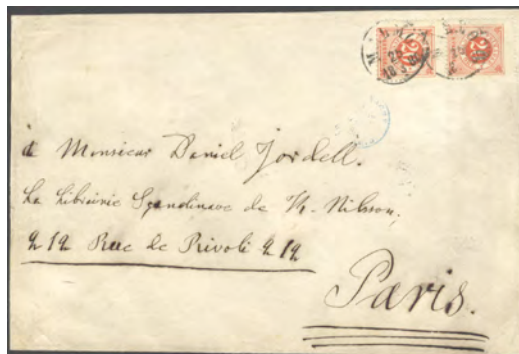 20 20
à Monsieur Daniel Jordell.
La Librairie Scandinave de K. Nilsson,
212 Rue de Rivoli 212
Paris.